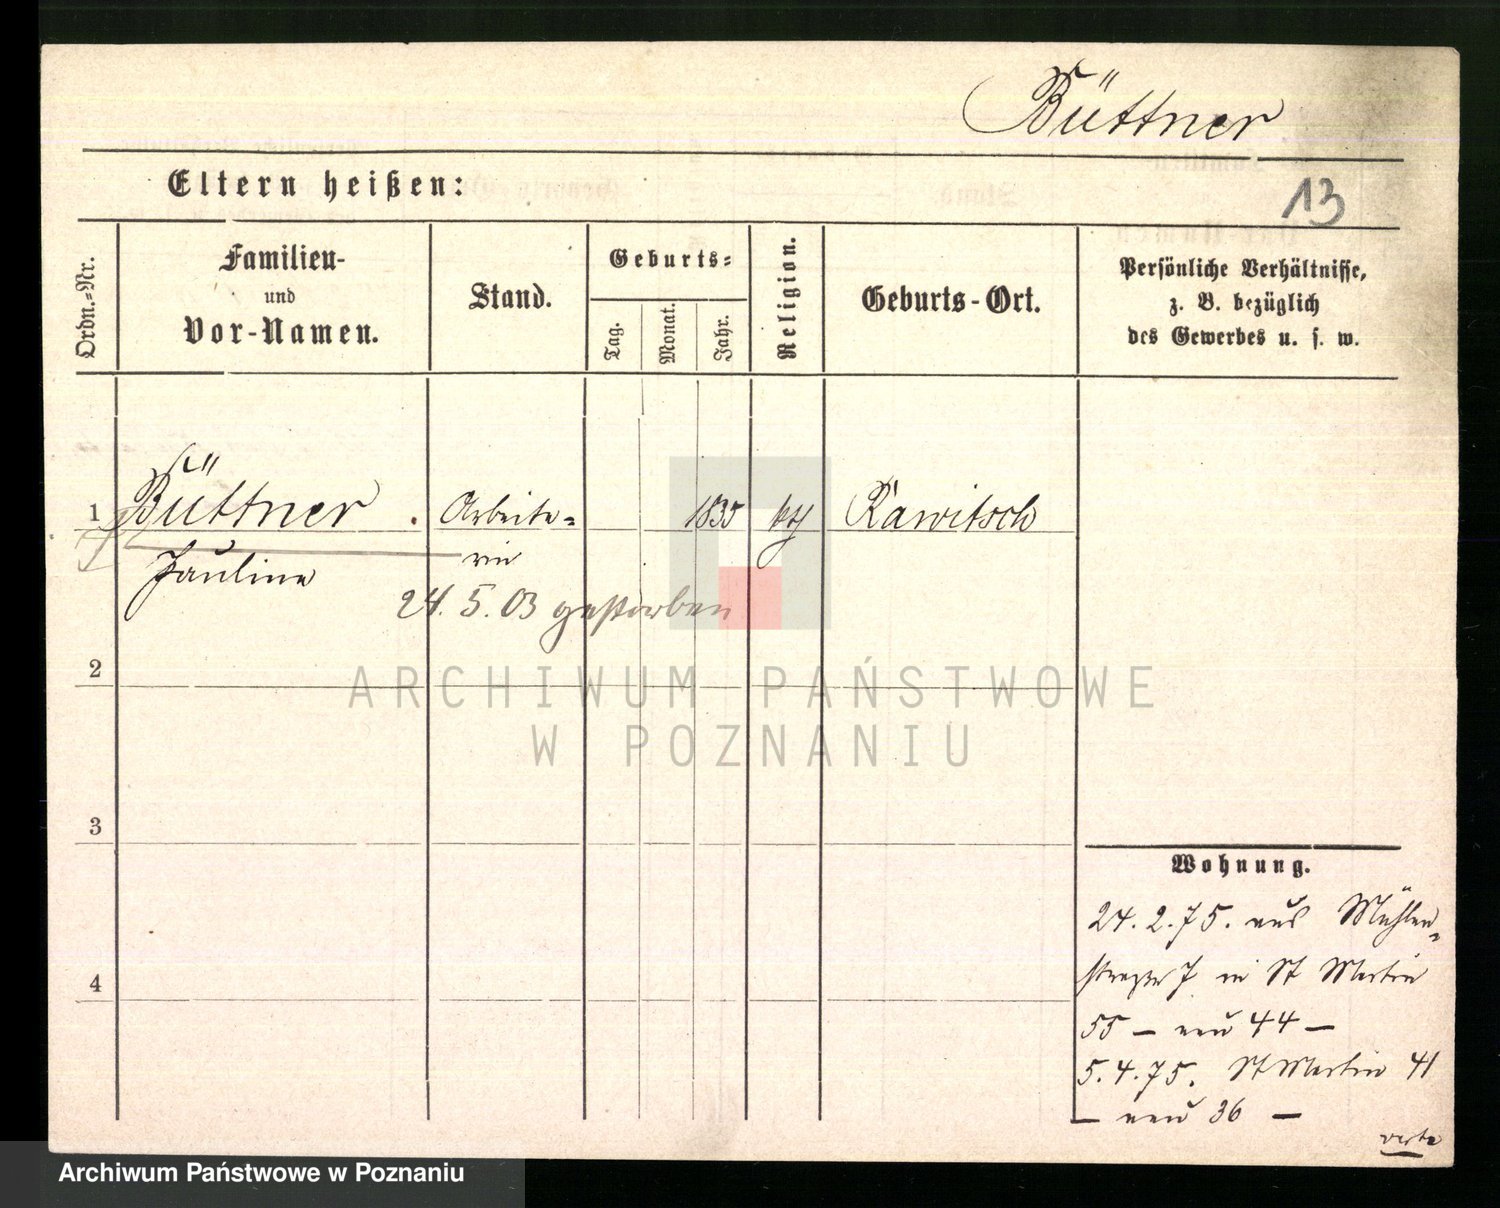 Büttner
Eltern heißen:
13
Ordn.-Nr.
Familien-
und
Vor-Namen.
Stand.
Geburts-
Tag.
Monat.
Jahr.
Religion.
Geburts-Ort.
Persönliche Verhältnisse,
z. B. bezüglich
des Gewerbes u. s. w.
1
Büttner
Arbeite-
1835
kth
Rawitsch
Pauline
rin
24. 5. 03 gestorben
2
ARCHIWUM PAŃSTWOWE
W POZNANIU
3
Wohnung.
24. 2. 75. aus Mühlen-
straße 7 in St Martin
4
55 — neu 44 —
5. 4. 75. St Martin 41
— neu 36 —
verte
Archiwum Państwowe w Poznaniu